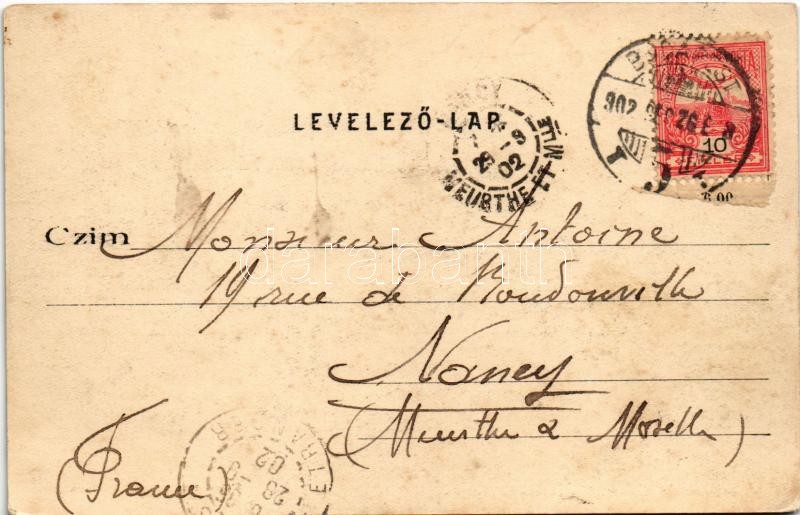 LEVELEZŐ-LAP
NANCY
MEURTHE ET MLLE
02
BUDAPEST
902 DEC 26
10
Czim
Monsieur Antoine
19 rue de Boudonville
Nancy
(Meurthe & Moselle)
(France)
ETRANGER
28
02
darabanth